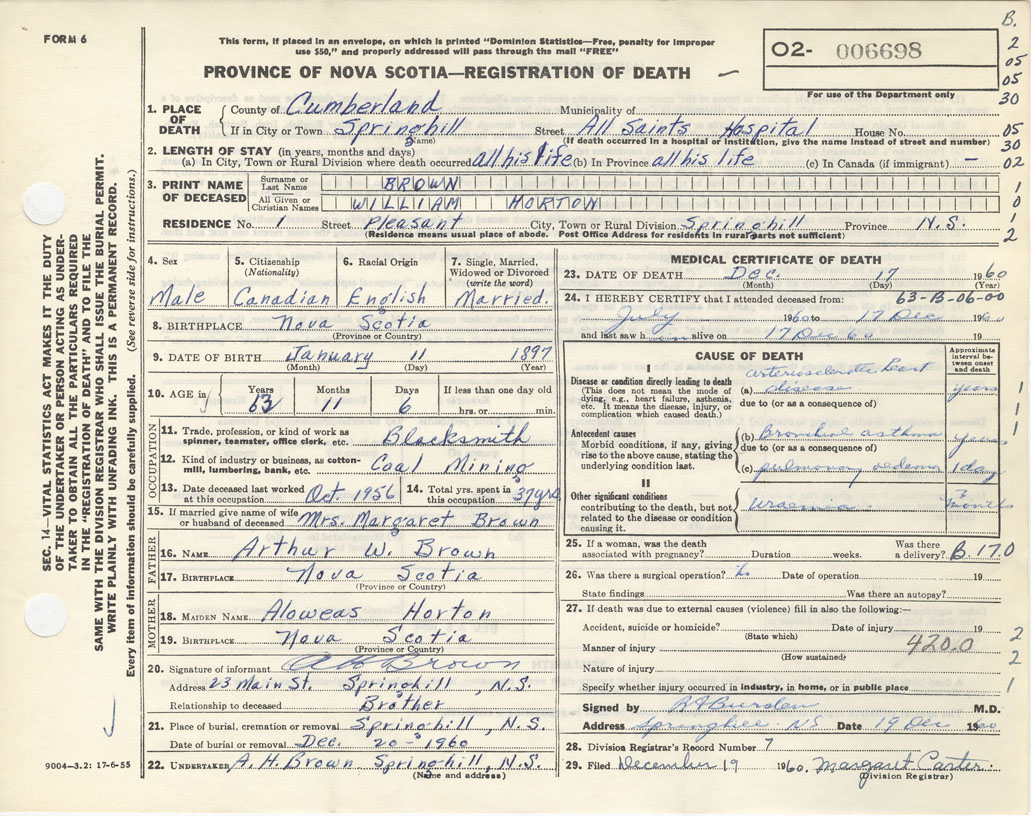 FORM 6
This form, if placed in an envelope, on which is printed "Dominion Statistics—Free, penalty for improper
use $50," and properly addressed will pass through the mail "FREE"
PROVINCE OF NOVA SCOTIA—REGISTRATION OF DEATH
02- 006698
For use of the Department only
B.
2
05
05
30
05
30
02
1
0
1
2
SEC. 14—VITAL STATISTICS ACT MAKES IT THE DUTY
OF THE UNDERTAKER OR PERSON ACTING AS UNDER-
TAKER TO OBTAIN ALL THE PARTICULARS REQUIRED
IN THE "REGISTRATION OF DEATH" AND TO FILE THE
SAME WITH THE DIVISION REGISTRAR WHO SHALL ISSUE THE BURIAL PERMIT.
WRITE PLAINLY WITH UNFADING INK. THIS IS A PERMANENT RECORD.
Every item of information should be carefully supplied. (See reverse side for instructions.)
1. PLACE OF DEATH
County of Cumberland Municipality of
If in City or Town Springhill Street All Saints Hospital House No.
(Name) (If death occurred in a hospital or institution, give the name instead of street and number)
2. LENGTH OF STAY (in years, months and days)
(a) In City, Town or Rural Division where death occurred all his life (b) In Province all his life (c) In Canada (if immigrant) —
3. PRINT NAME OF DECEASED
Surname or Last Name BROWN
All Given or Christian Names WILLIAM HORTON
RESIDENCE No. 1 Street Pleasant City, Town or Rural Division Springhill Province N.S.
(Residence means usual place of abode. Post Office Address for residents in rural parts not sufficient)
4. Sex 5. Citizenship (Nationality) 6. Racial Origin 7. Single, Married, Widowed or Divorced (write the word)
Male Canadian English Married.
8. BIRTHPLACE Nova Scotia
(Province or Country)
9. DATE OF BIRTH January 11 1897
(Month) (Day) (Year)
10. AGE in Years Months Days If less than one day old
63 11 6 hrs. or min.
OCCUPATION
11. Trade, profession, or kind of work as
spinner, teamster, office clerk, etc. Blacksmith
12. Kind of industry or business, as cotton-
mill, lumbering, bank, etc. Coal Mining
13. Date deceased last worked
at this occupation Oct. 1956
14. Total yrs. spent in
this occupation 37 yrs
15. If married give name of wife
or husband of deceased Mrs. Margaret Brown
FATHER
16. NAME Arthur W. Brown
17. BIRTHPLACE Nova Scotia
(Province or Country)
MOTHER
18. MAIDEN NAME Aloweas Horton
19. BIRTHPLACE Nova Scotia
(Province or Country)
20. Signature of informant A H Brown
Address 23 Main St. Springhill, N.S.
Relationship to deceased Brother
21. Place of burial, cremation or removal Springhill, N.S.
Date of burial or removal Dec. 20 - 1960
22. UNDERTAKER A. H. Brown Springhill, N.S.
(Name and address)
9004-3.2: 17-6-55
MEDICAL CERTIFICATE OF DEATH
23. DATE OF DEATH Dec. 17 1960
(Month) (Day) (Year)
24. I HEREBY CERTIFY that I attended deceased from: 63-B-06-00
July 1960 to 17 Dec 1960
and last saw him alive on 17 Dec 60 19
CAUSE OF DEATH
Approximate interval be-
tween onset and death
I
Disease or condition directly leading to death
(This does not mean the mode of
dying, e.g., heart failure, asthenia,
etc. It means the disease, injury, or
complication which caused death.)
arteriosclerotic heart
(a) disease years
due to (or as a consequence of)
Antecedent causes
Morbid conditions, if any, giving
rise to the above cause, stating the
underlying condition last.
(b) Bronchial asthma years
due to (or as a consequence of)
(c) pulmonary oedema 1 day
II
Other significant conditions
contributing to the death, but not
related to the disease or condition
causing it.
Uraemia 3 months
1
1
1
25. If a woman, was the death
associated with pregnancy? Duration weeks. Was there
a delivery? B.170
26. Was there a surgical operation? Date of operation 19
State findings Was there an autopsy?
27. If death was due to external causes (violence) fill in also the following:—
Accident, suicide or homicide? Date of injury 19 2
(State which)
Manner of injury 420.0 2
(How sustained)
Nature of injury
Specify whether injury occurred in industry, in home, or in public place 1
Signed by M.D.
Address Springhill NS Date 19 Dec 1960
28. Division Registrar's Record Number 7
29. Filed December 19 1960. Margaret Carter.
(Division Registrar)